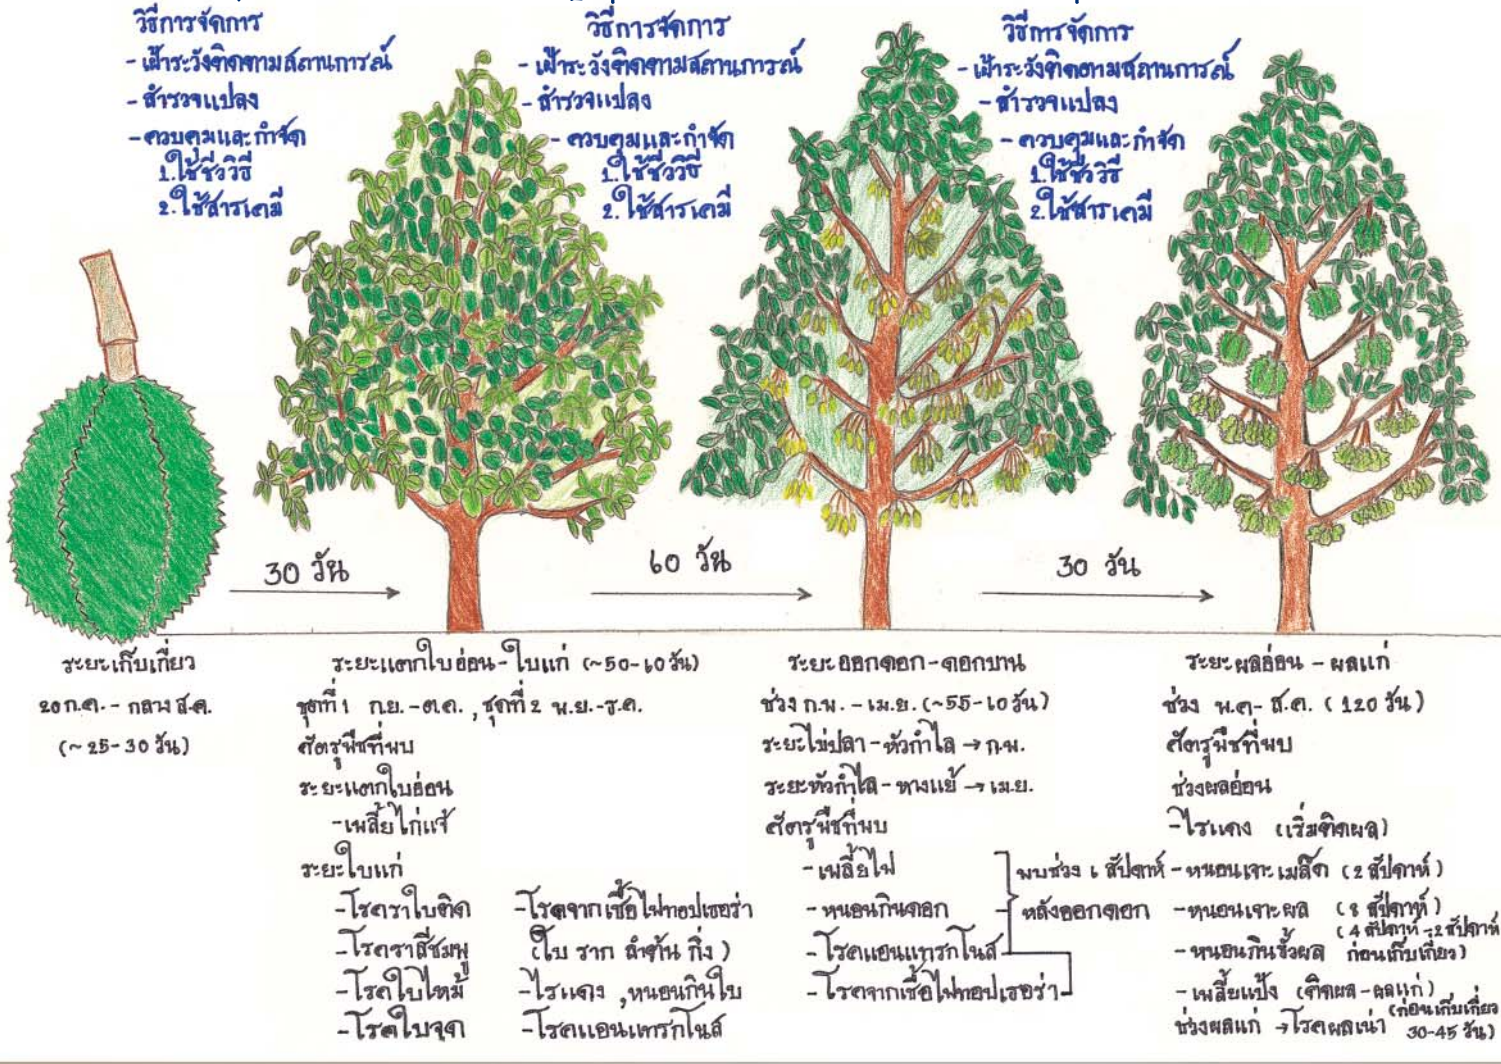 วิธีการจัดการ
- เฝ้าระวังติดตามสถานการณ์
- สำรวจแปลง
- ควบคุมและกำจัด
1.ใช้ชีววิธี
2.ใช้สารเคมี
วิธีการจัดการ
- เฝ้าระวังติดตามสถานการณ์
- สำรวจแปลง
- ควบคุมและกำจัด
1.ใช้ชีววิธี
2.ใช้สารเคมี
วิธีการจัดการ
- เฝ้าระวังติดตามสถานการณ์
- สำรวจแปลง
- ควบคุมและกำจัด
1.ใช้ชีววิธี
2.ใช้สารเคมี
30 วัน
60 วัน
30 วัน
ระยะเก็บเกี่ยว
20 ก.ค. - กลาง ส.ค.
(~ 25-30 วัน)
ระยะแตกใบอ่อน - ใบแก่ (~50-60 วัน)
ชุดที่ 1 ก.ย.-ต.ค. , ชุดที่ 2 พ.ย.-ธ.ค.
ศัตรูพืชที่พบ
ระยะแตกใบอ่อน
- เพลี้ยไก่แจ้
ระยะใบแก่
- โรคราใบติด
- โรคราสีชมพู
- โรคใบไหม้
- โรคใบจุด
- โรคจากเชื้อไฟทอปเธอร่า
(ใบ ราก ลำต้น กิ่ง)
- ไรแดง , หนอนกินใบ
- โรคแอนแทรกโนส
ระยะออกดอก - ดอกบาน
ช่วง ก.พ. - เม.ย. (~55-60 วัน)
ระยะไข่ปลา - หัวกำไล → ก.พ.
ระยะหัวกำไล - หางแย้ → เม.ย.
ศัตรูพืชที่พบ
- เพลี้ยไฟ
- หนอนกินดอก
- โรคแอนแทรกโนส
- โรคจากเชื้อไฟทอปเธอร่า
พบช่วง 6 สัปดาห์
หลังออกดอก
ระยะผลอ่อน - ผลแก่
ช่วง พ.ค - ส.ค. (120 วัน)
ศัตรูพืชที่พบ
ช่วงผลอ่อน
- ไรแดง (เริ่มติดผล)
- หนอนเจาะเมล็ด (2 สัปดาห์)
- หนอนเจาะผล (8 สัปดาห์)
- หนอนกินขั้วผล (4 สัปดาห์ - 2 สัปดาห์
ก่อนเก็บเกี่ยว)
- เพลี้ยแป้ง (ติดผล - ผลแก่)
ช่วงผลแก่ → โรคผลเน่า (ก่อนเก็บเกี่ยว
30-45 วัน)